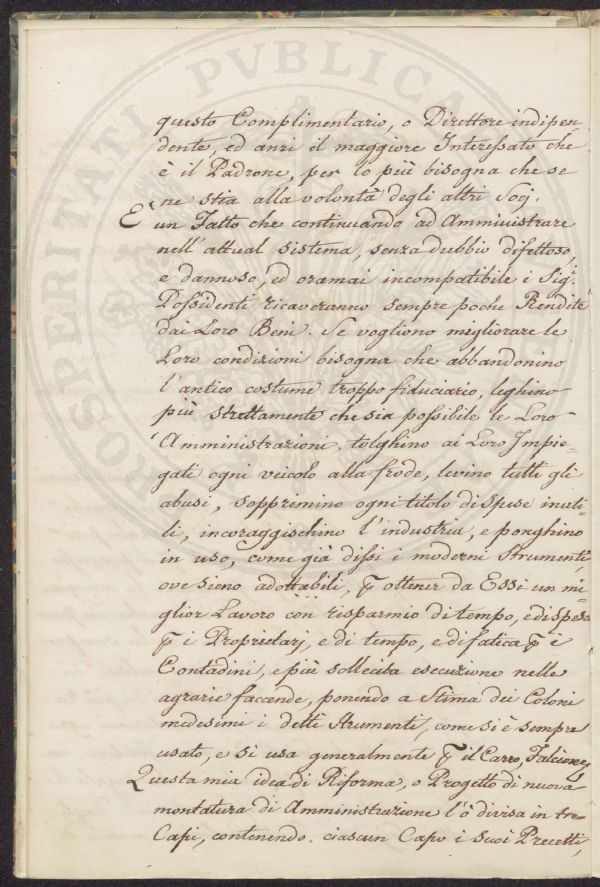 questo Complimentario, o Direttore indipen-
dente, ed anzi il maggiore Interessato che
è il Padrone, per lo più bisogna che se
ne stia alla volontà degli altri Socj.
È un Fatto che continuando ad Amministrare
nell'attual sistema, senza dubbio difettoso,
e dannoso, ed oramai incompatibile i Sig.ri
Possidenti ricaveranno sempre poche Rendite
dai Loro Beni. Se vogliono migliorare le
Loro condizioni bisogna che abbandonino
l'antico costume troppo fiduciario, leghino
più strettamente che sia possibile le Loro
Amministrazioni, tolghino ai Loro Impie-
gati ogni veicolo alla frode, levino tutti gli
abusi, sopprimino ogni titolo di spese inuti-
li, incoraggischino l'industria, e ponghino
in uso, come già dissi i moderni Strumenti,
ove sieno adottabili, ꝑ ottener da Essi un mi-
glior Lavoro con risparmio di tempo, e di spesa
ꝑ i Proprietarj, e di tempo, e di fatica ꝑ i
Contadini, e più sollecita esecuzione nelle
agrarie faccende, ponendo a Stima dei Coloni
medesimi i detti Strumenti, come si è sempre
usato, e si usa generalmente ꝑ il Carro, Falcione
Questa mia idea di Riforma, o Progetto di nuova
montatura di Amministrazione l'ò divisa in tre
Capi, contenendo ciascun Capo i suoi Precetti,
PROSPERITATI PVBLICAE